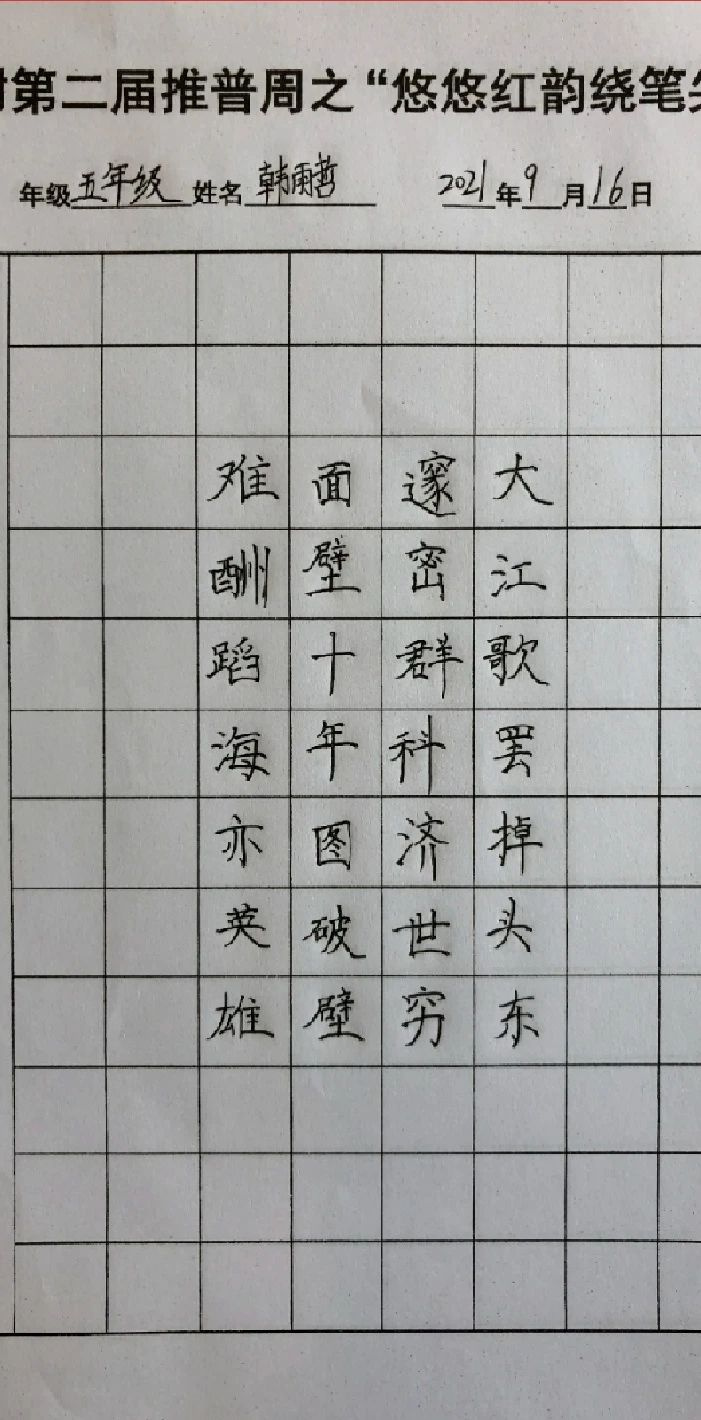 第二届推普周之“悠悠红韵绕笔尖
年级五年级 姓名韩雨哲 2021年9月16日
大江歌罢掉头东
邃密群科济世穷
面壁十年图破壁
难酬蹈海亦英雄